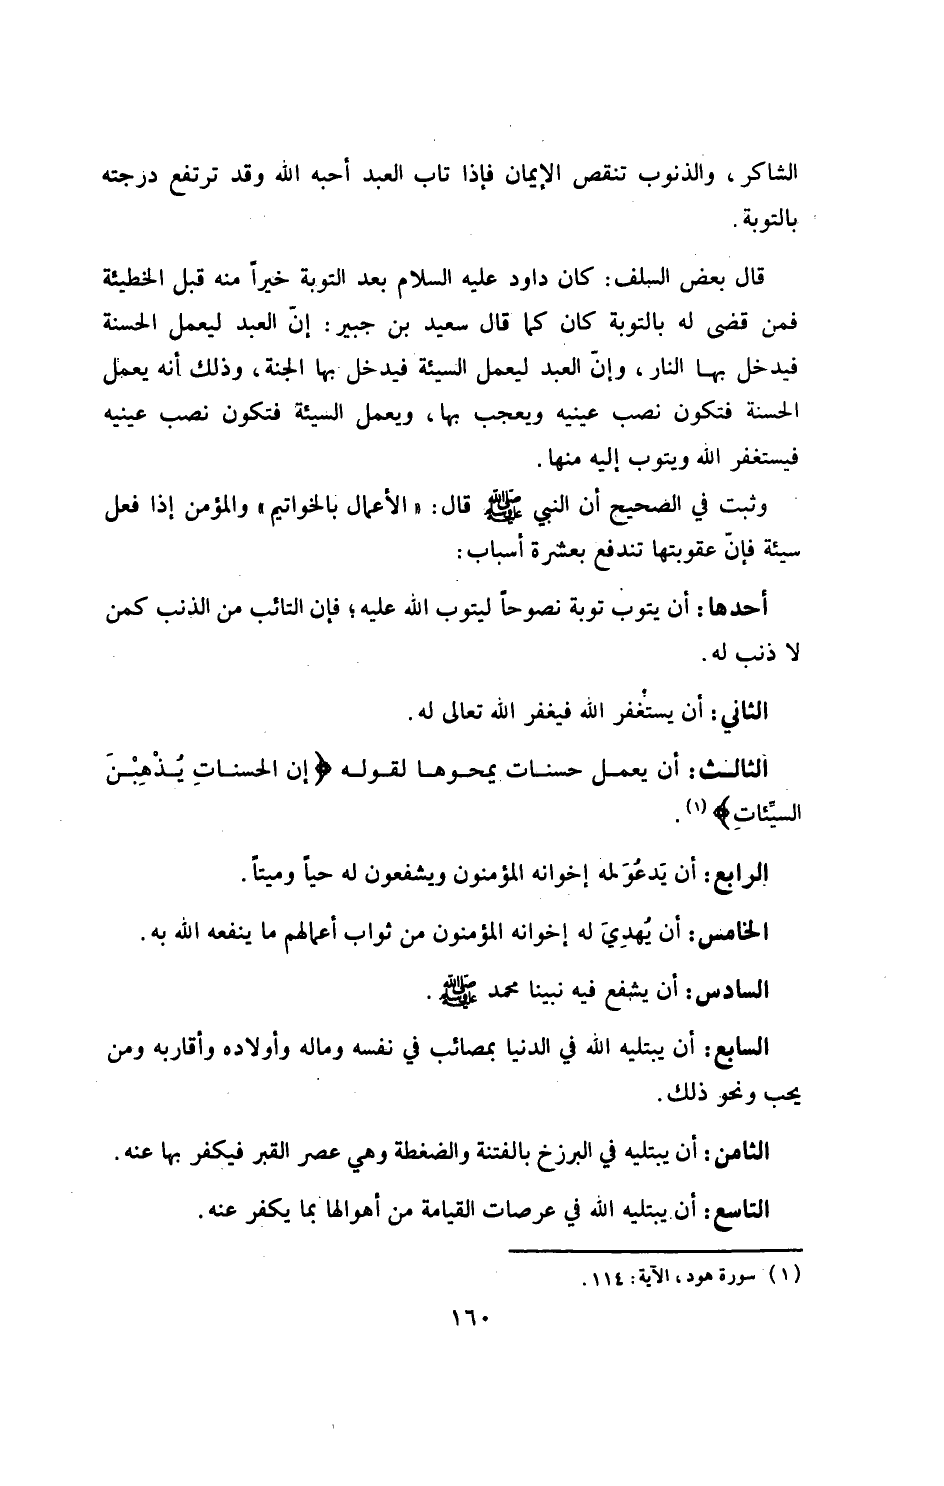 الشاكر، والذنوب تنقص الإيمان فإذا تاب العبد أحبه الله وقد ترتفع درجته
بالتوبة.
قال بعض السلف: كان داود عليه السلام بعد التوبة خيراً منه قبل الخطيئة
فمن قضى له بالتوبة كان كما قال سعيد بن جبير: إنّ العبد ليعمل الحسنة
فيدخل بها النار، وإنّ العبد ليعمل السيئة فيدخل بها الجنة، وذلك أنه يعمل
الحسنة فتكون نصب عينيه ويعجب بها، ويعمل السيئة فتكون نصب عينيه
فيستغفر الله ويتوب إليه منها.
وثبت في الصحيح أن النبي ﷺ قال: «الأعمال بالخواتيم» والمؤمن إذا فعل
سيئة فإنّ عقوبتها تندفع بعشرة أسباب:
أحدها: أن يتوب توبة نصوحاً ليتوب الله عليه؛ فإن التائب من الذنب كمن
لا ذنب له.
الثاني: أن يستغفر الله فيغفر الله تعالى له.
الثالث: أن يعمل حسنات يمحوها لقوله ﴿إن الحسناتِ يُذْهِبْنَ
السيِّئاتِ﴾ (١).
الرابع: أن يَدعُوَ له إخوانه المؤمنون ويشفعون له حياً وميتاً.
الخامس: أن يُهدِيَ له إخوانه المؤمنون من ثواب أعمالهم ما ينفعه الله به.
السادس: أن يشفع فيه نبينا محمد ﷺ.
السابع: أن يبتليه الله في الدنيا بمصائب في نفسه وماله وأولاده وأقاربه ومن
يحب ونحو ذلك.
الثامن: أن يبتليه في البرزخ بالفتنة والضغطة وهي عصر القبر فيكفر بها عنه.
التاسع: أن يبتليه الله في عرصات القيامة من أهوالها بما يكفر عنه.
(١) سورة هود، الآية: ١١٤.
١٦٠